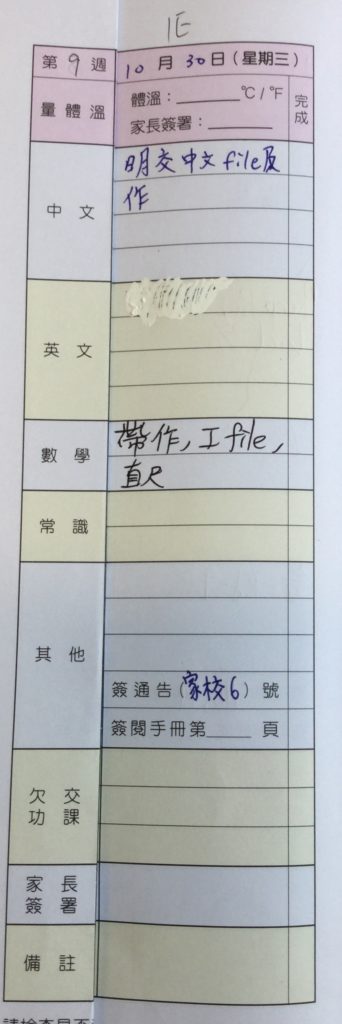 1E
第9週 10月30日(星期三)
量體溫 體溫：______°C/°F 完成
家長簽署：______
中文 明交中文file及
作
英文
數學 帶作, 工file,
直尺
常識
其他
簽通告(家校6)號
簽閱手冊第____頁
欠交
功課
家長
簽署
備註